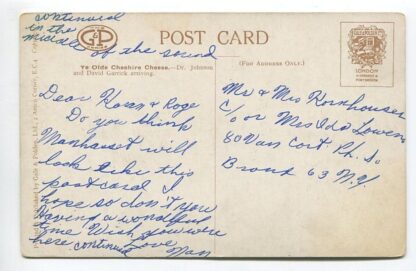 continued
in the
middle of the scrind
POST CARD
Ye Olde Cheshire Cheese.—Dr. Johnson
and David Garrick arriving.
(FOR ADDRESS ONLY.)
LONDON
Dear & Roge
Do you think
Manhasset will
look like this
postcard I
hope so don't you
Having a wonderful
time Wish you were
here continued Love
Nan
Mr & Mrs Kornhauser
c/o Mrs Ida Lowens
80 Van Cort Pk. So
Bronx 63 N.Y.